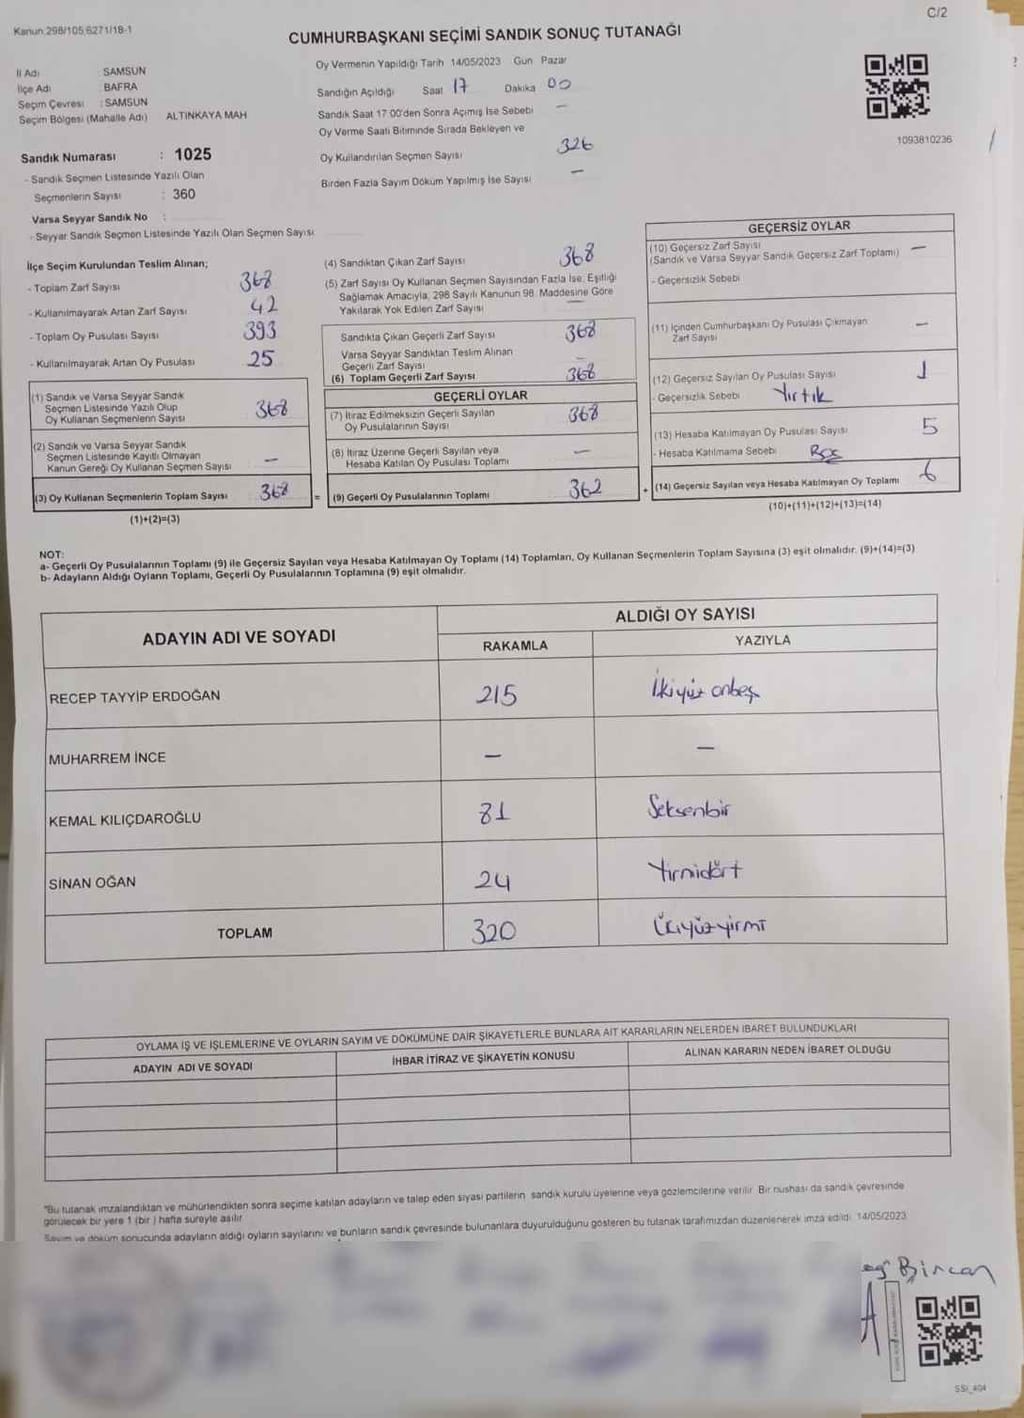 C/2
Kanun:298/105,6271/18-1
CUMHURBAŞKANI SEÇİMİ SANDIK SONUÇ TUTANAĞI
İl Adı : SAMSUN
İlçe Adı : BAFRA
Seçim Çevresi : SAMSUN
Seçim Bölgesi (Mahalle Adı) ALTINKAYA MAH
Sandık Numarası : 1025
- Sandık Seçmen Listesinde Yazılı Olan
Seçmenlerin Sayısı : 360
Varsa Seyyar Sandık No :
- Seyyar Sandık Seçmen Listesinde Yazılı Olan Seçmen Sayısı:
Oy Vermenin Yapıldığı Tarih 14/05/2023 Gün Pazar
Sandığın Açıldığı Saat 17 Dakika 00
Sandık Saat 17.00'den Sonra Açımış İse Sebebi —
Oy Verme Saati Bitiminde Sırada Bekleyen ve
Oy Kullandırılan Seçmen Sayısı 326
Birden Fazla Sayım Döküm Yapılmış İse Sayısı —
1093810236
İlçe Seçim Kurulundan Teslim Alınan;
- Toplam Zarf Sayısı 368
- Kullanılmayarak Artan Zarf Sayısı 42
- Toplam Oy Pusulası Sayısı 393
- Kullanılmayarak Artan Oy Pusulası 25
(1) Sandık ve Varsa Seyyar Sandık
Seçmen Listesinde Yazılı Olup
Oy Kullanan Seçmenlerin Sayısı 368
(2) Sandık ve Varsa Seyyar Sandık
Seçmen Listesinde Kayıtlı Olmayan
Kanun Gereği Oy Kullanan Seçmen Sayısı —
(3) Oy Kullanan Seçmenlerin Toplam Sayısı 368
(1)+(2)=(3)
(4) Sandıktan Çıkan Zarf Sayısı 368
(5) Zarf Sayısı Oy Kullanan Seçmen Sayısından Fazla İse, Eşitliği
Sağlamak Amacıyla, 298 Sayılı Kanunun 98. Maddesine Göre
Yakılarak Yok Edilen Zarf Sayısı —
Sandıkta Çıkan Geçerli Zarf Sayısı 368
Varsa Seyyar Sandıktan Teslim Alınan
Geçerli Zarf Sayısı —
(6) Toplam Geçerli Zarf Sayısı 368
GEÇERLİ OYLAR
(7) İtiraz Edilmeksizin Geçerli Sayılan
Oy Pusulalarının Sayısı 368
(8) İtiraz Üzerine Geçerli Sayılan veya
Hesaba Katılan Oy Pusulası Toplamı —
= (9) Geçerli Oy Pusulalarının Toplamı 362
GEÇERSİZ OYLAR
(10) Geçersiz Zarf Sayısı
(Sandık ve Varsa Seyyar Sandık Geçersiz Zarf Toplamı) —
- Geçersizlik Sebebi
(11) İçinden Cumhurbaşkanı Oy Pusulası Çıkmayan
Zarf Sayısı —
(12) Geçersiz Sayılan Oy Pusulası Sayısı 1
- Geçersizlik Sebebi Yırtık
(13) Hesaba Katılmayan Oy Pusulası Sayısı 5
- Hesaba Katılmama Sebebi Boş
+ (14) Geçersiz Sayılan veya Hesaba Katılmayan Oy Toplamı 6
(10)+(11)+(12)+(13)=(14)
NOT:
a- Geçerli Oy Pusulalarının Toplamı (9) ile Geçersiz Sayılan veya Hesaba Katılmayan Oy Toplamı (14) Toplamları, Oy Kullanan Seçmenlerin Toplam Sayısına (3) eşit olmalıdır. (9)+(14)=(3)
b- Adayların Aldığı Oyların Toplamı, Geçerli Oy Pusulalarının Toplamına (9) eşit olmalıdır.
ADAYIN ADI VE SOYADI ALDIĞI OY SAYISI
RAKAMLA YAZIYLA
RECEP TAYYİP ERDOĞAN 215 İkiyüz onbeş
MUHARREM İNCE — —
KEMAL KILIÇDAROĞLU 81 Seksenbir
SİNAN OĞAN 24 Yirmidört
TOPLAM 320 Üçyüzyirmi
OYLAMA İŞ VE İŞLEMLERİNE VE OYLARIN SAYIM VE DÖKÜMÜNE DAİR ŞİKAYETLERLE BUNLARA AİT KARARLARIN NELERDEN İBARET BULUNDUKLARI
ADAYIN ADI VE SOYADI İHBAR İTİRAZ VE ŞİKAYETİN KONUSU ALINAN KARARIN NEDEN İBARET OLDUĞU
*Bu tutanak imzalandıktan ve mühürlendikten sonra seçime katılan adayların ve talep eden siyasi partilerin sandık kurulu üyelerine veya gözlemcilerine verilir. Bir nüshası da sandık çevresinde
görülecek bir yere 1 (bir) hafta süreyle asılır
Sayım ve döküm sonucunda adayların aldığı oyların sayılarını ve bunların sandık çevresinde bulunanlara duyurulduğunu gösteren bu tutanak tarafımızdan düzenlenerek imza edildi. 14/05/2023
Bircan
SSI_404